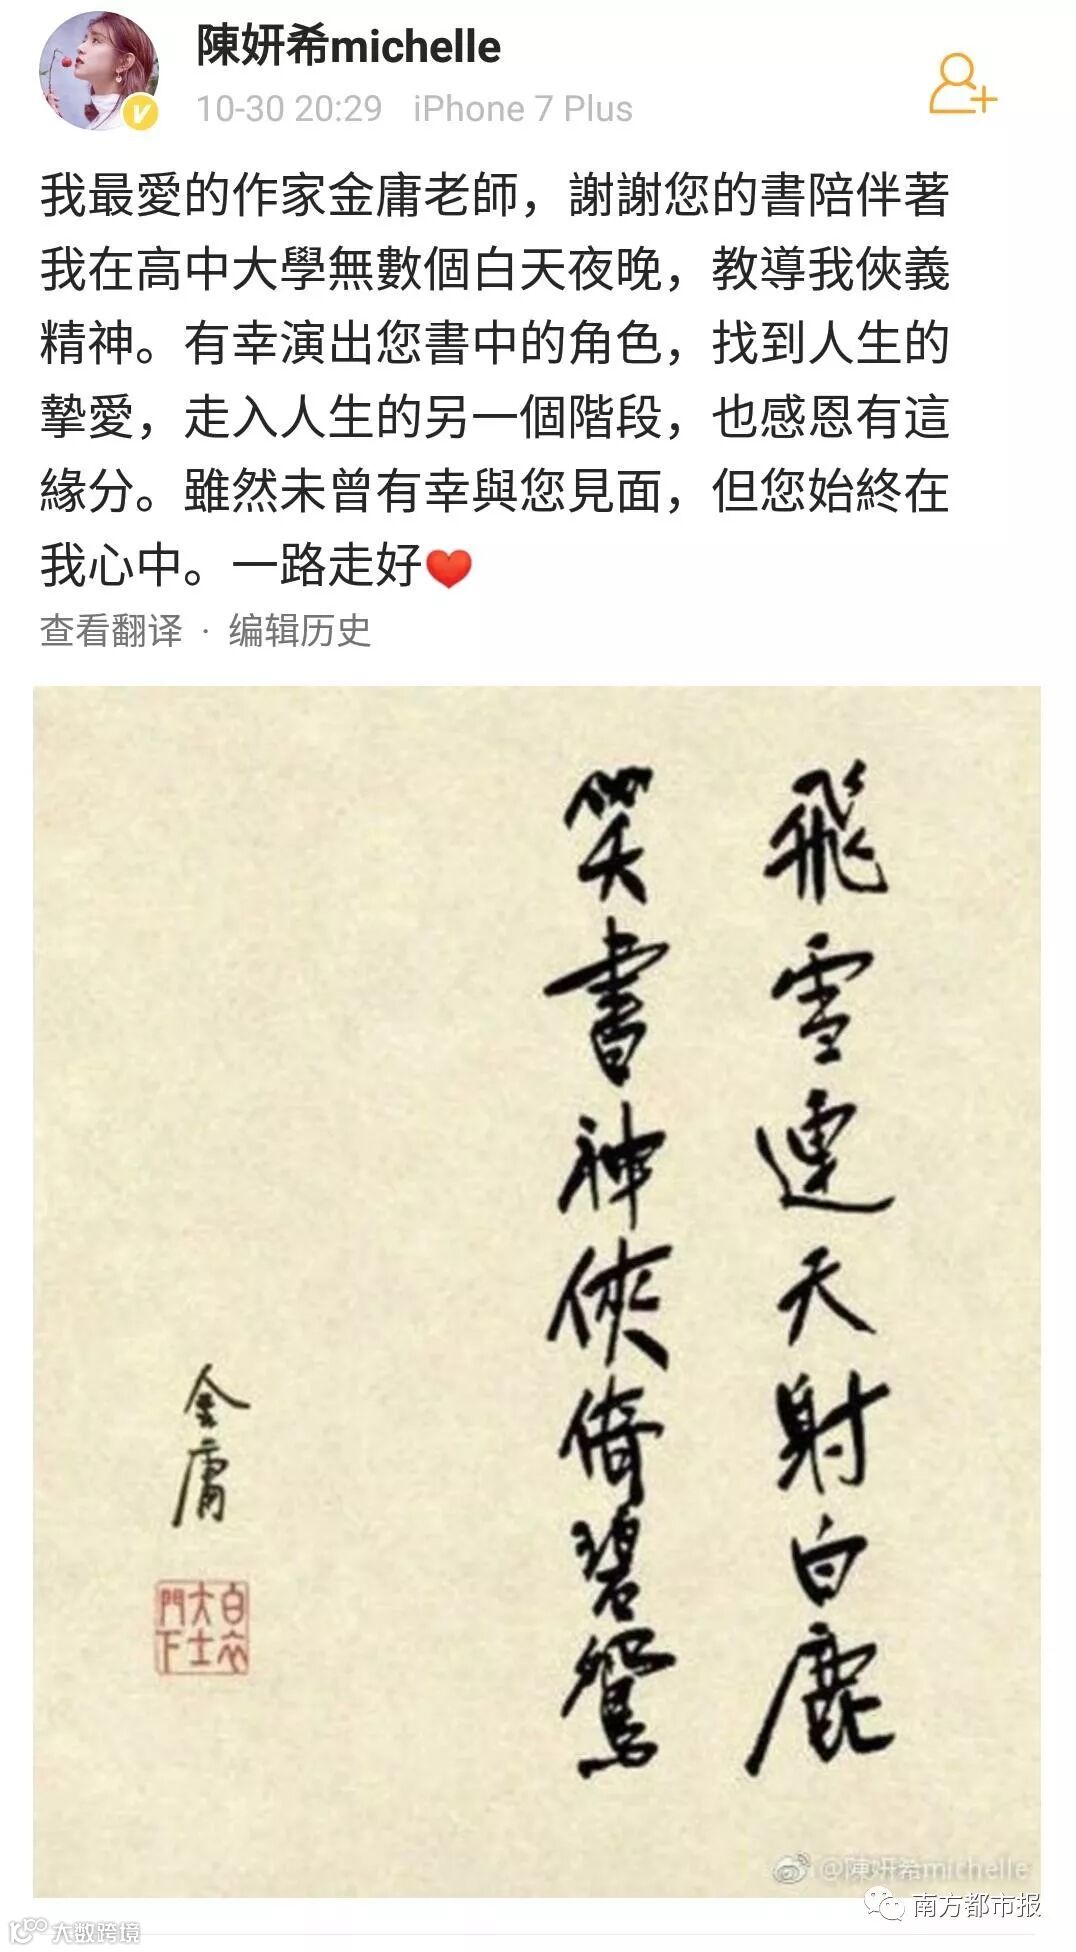 陳妍希michelle
10-30 20:29 iPhone 7 Plus
我最愛的作家金庸老師，謝謝您的書陪伴著
我在高中大學無數個白天夜晚，教導我俠義
精神。有幸演出您書中的角色，找到人生的
摯愛，走入人生的另一個階段，也感恩有這
緣分。雖然未曾有幸與您見面，但您始終在
我心中。一路走好❤️
查看翻译 · 编辑历史
飛雪連天射白鹿
笑書神俠倚碧鴛
金庸
白衣
大士
門下
@陳妍希michelle
南方都市报
大数跨境